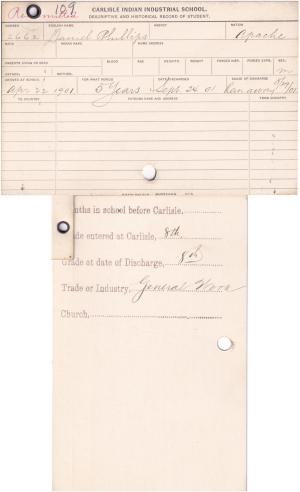 Readmitted 129 CARLISLE INDIAN INDUSTRIAL SCHOOL.
DESCRIPTIVE AND HISTORICAL RECORD OF STUDENT.
NUMBER ENGLISH NAME AGENCY NATION
2662 Daniel Phillips Apache
BAND INDIAN NAME HOME ADDRESS
PARENTS LIVING OR DEAD BLOOD AGE HEIGHT WEIGHT FORCED INSP. FORCED EXPR. SEX
FATHER MOTHER m
ARRIVED AT SCHOOL FOR WHAT PERIOD DATE DISCHARGED CAUSE OF DISCHARGE
Apr 22 1901 5 Years Sept 24 01 Ranaway
TO COUNTRY PATRONS NAME AND ADDRESS FROM COUNTRY
nths in school before Carlisle,
de entered at Carlisle, 8th
Grade at date of Discharge, 8th
Trade or Industry, General Work
Church,